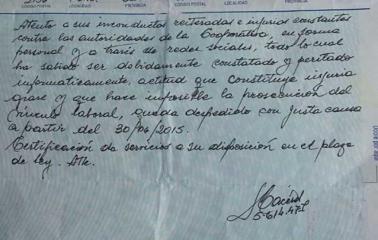 CODIGO POSTAL LOCALIDAD PROVINCIA CODIGO POSTAL LOCALIDAD PROVINCIA
Atento a sus inconductas reiteradas e injurias constantes
contra las autoridades de la Cooperativa, en forma
personal y a través de redes sociales, todo lo cual
ha sabido ser debidamente constatado y peritado
informaticamente, actitud que constituye injuria
grave y que hace imposible la prosecución del
vínculo laboral, queda despedido con justa causa
a partir del 30/04/2015.
Certificación de servicios a su disposición en el plazo
de ley. Atte.